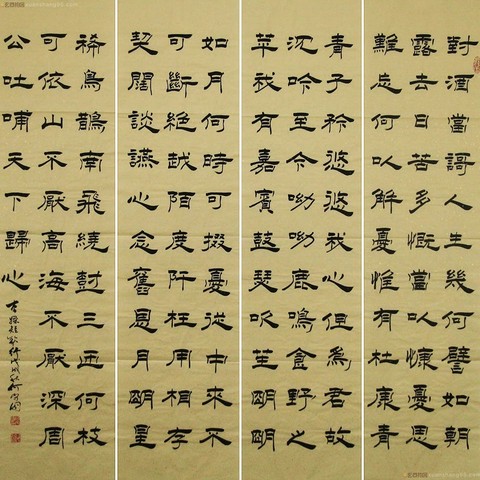 對酒當謌人生幾何譬如朝
露去日苦多慨當以慷憂思
難忘何以解憂惟有杜康青
青子衿悠悠我心但為君故
沈吟至今呦呦鹿鳴食野之
苹我有嘉賓鼓瑟吹笙明明
如月何時可掇憂從中來不
可斷絕越陌度阡枉用相存
契闊談讌心念舊恩月明星
稀烏鵲南飛繞樹三匝何枝
可依山不厭高海不厭深周
公吐哺天下歸心
曹操短歌行